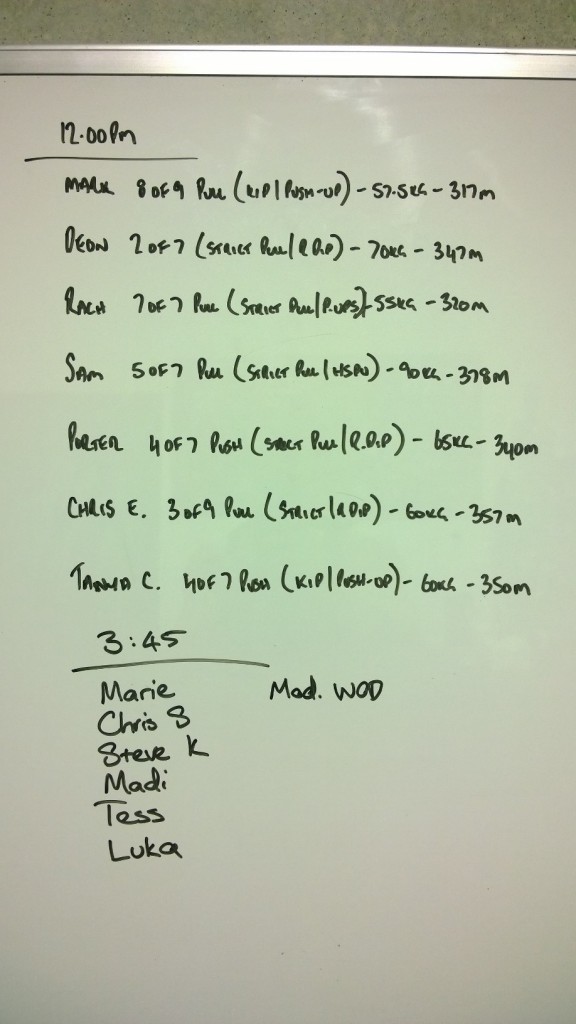 12.00Pm
MARK 8 OF 9 PULL (KIP/PUSH-UP) - 57.5KG - 317m
DEON 2 OF 7 (STRICT PULL/R.DIP) - 70KG - 347m
RACH 7 OF 7 PULL (STRICT PULL/P.UPS) - 55KG - 320m
SAM 5 OF 7 PULL (STRICT PULL/HSPU) - 90KG - 378m
PORTER 4 OF 7 PUSH (STRICT PULL/R.DIP) - 65KG - 340m
CHRIS E. 3 OF 9 PULL (STRICT/R DIP) - 60KG - 357m
TANYA C. 4 OF 7 PUSH (KIP/PUSH-UP) - 60KG - 350m
3:45
Marie Mod. WOD
Chris S
Steve K
Madi
Tess
Luka